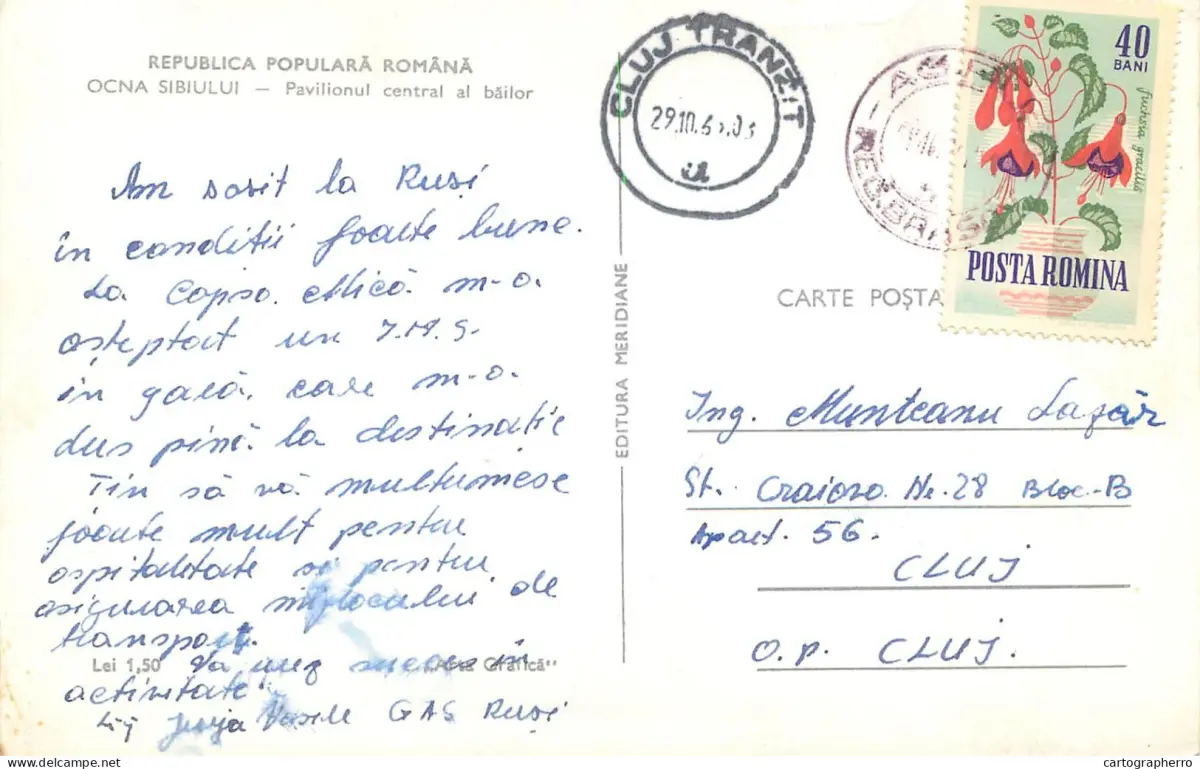 REPUBLICA POPULARĂ ROMÂNĂ
OCNA SIBIULUI — Pavilionul central al băilor
Am sosit la Ruși
în conditii foarte bune.
La Copșa Mică m-a
așteptat un I.M.S-
în gară, care m-a
dus pină la destinatie
Tin să vă multumesc
foarte mult pentru
ospitalitate si pentru
asigurarea mijlocului de
transport.
Va urez succes în
activitate
Vasile GAS Ruși
Lei 1,50
"Arta Grafică"
EDITURA MERIDIANE
CLUJ TRANZIT
REG. BRAȘ
40
BANI
fuchsia gracilis
POSTA ROMINA
CARTE POȘTA
Ing. Munteanu Lazăr
St. Craiova Nr. 28 Bloc-B
Apart. 56.
CLUJ
O.P. CLUJ.
cartographerro